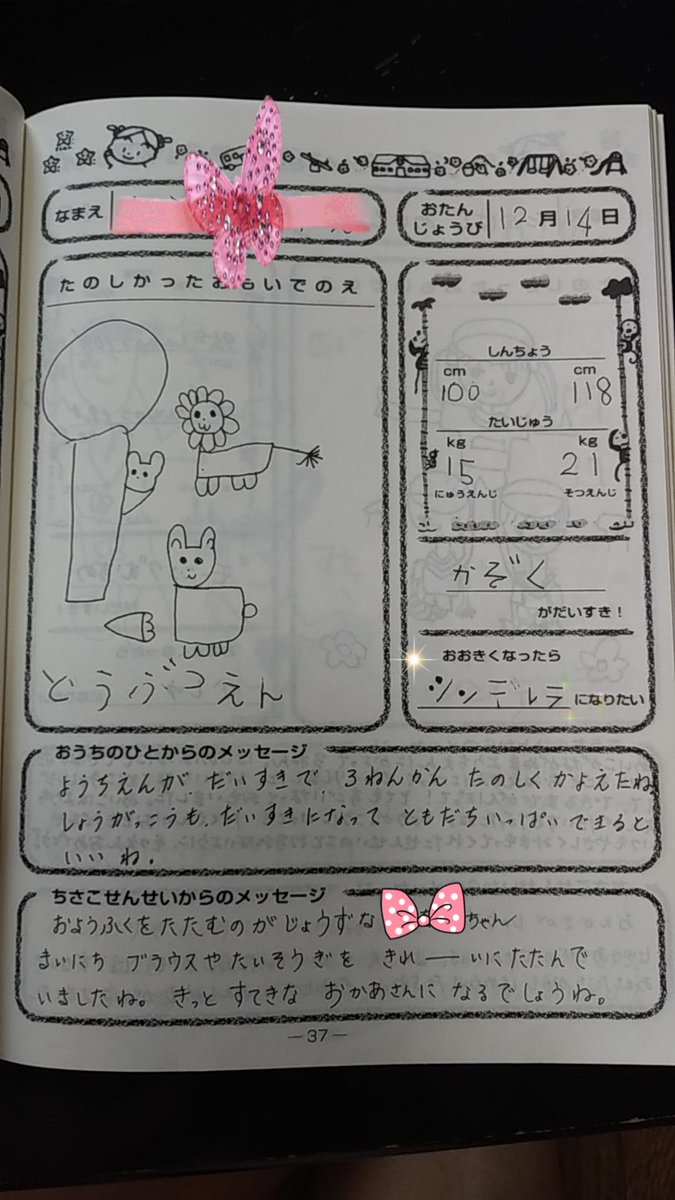 なまえ
おたん
じょうび
12月14日
たのしかったおもいでのえ
どうぶつえん
しんちょう
cm cm
100 118
たいじゅう
kg kg
15 21
にゅうえんじ そつえんじ
かぞく
がだいすき！
おおきくなったら
シンデレラになりたい
おうちのひとからのメッセージ
ようちえんが、だいすきで、3ねんかん たのしく かよえたね
しょうがっこうも、だいすきになって ともだちいっぱいできると
いいね。
ちさこせんせいからのメッセージ
おようふくをたたむのがじょうずな ちゃん
まいにち ブラウスやたいそうぎを きれーいにたたんで
いましたね。きっと すてきな おかあさんに なるでしょうね。
—37—